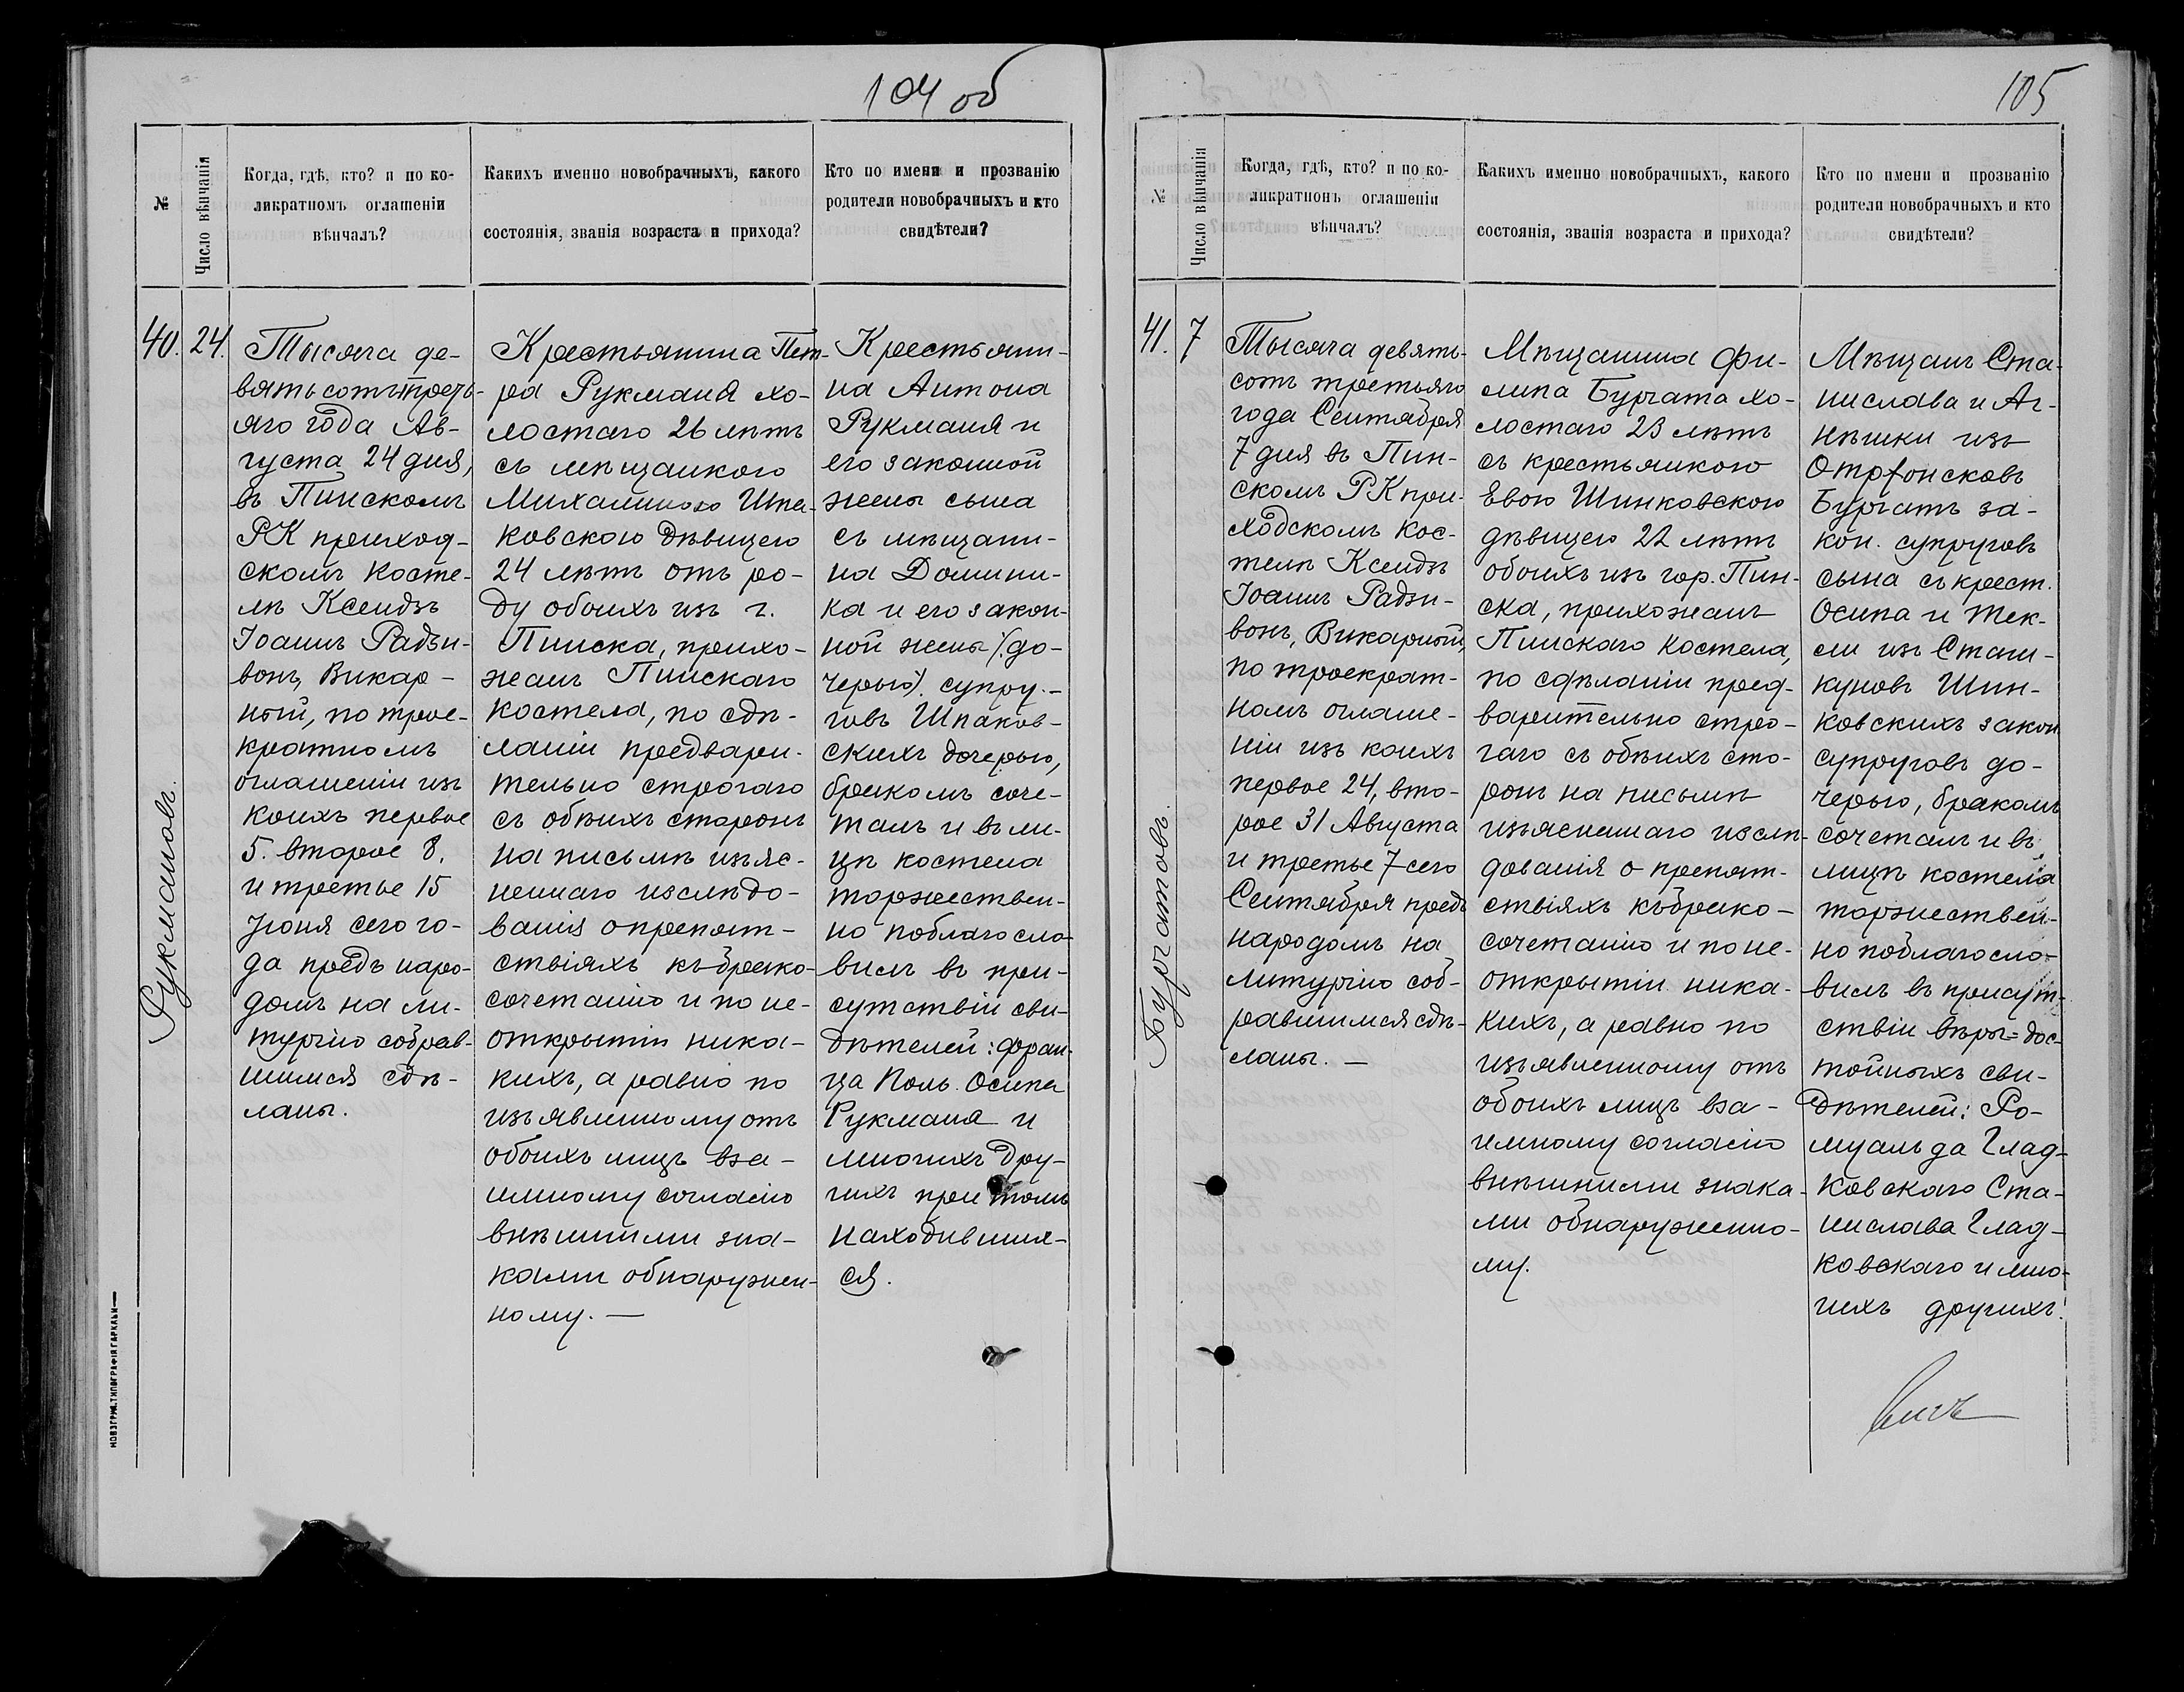 104 об
№
Число вѣнчанія
Когда, гдѣ, кто? и по ко-
ликратномъ оглашеніи
вѣнчалъ?
Какихъ именно новобрачныхъ, какого
состоянія, званія возраста и прихода?
Кто по имени и прозванію
родители новобрачныхъ и кто
свидѣтели?
40.
24.
Рукмановъ.
Тысяча де-
вятьсотътреть-
яго года Ав-
густа 24 дня,
въ Пинскомъ
РК приход-
скомъ косте-
лѣ Ксендзъ
Іоаннъ Радзи-
вонъ, Викар-
ный, по трое-
кратномъ
оглашеніи изъ
коихъ первое
5. второе 8.
и третье 15
Іюня сего го-
да предъ наро-
домъ на ли-
тургію собрав-
шимся сдѣ-
ланы.
Крестьянина Пет-
ра Рукманя хо-
лостаго 26 лѣтъ
съ мѣщанкою
Михалиною Шпа-
ковскою дѣвицею
24 лѣтъ отъ ро-
ду обоихъ изъ г.
Пинска, прихо-
жанъ Пинскаго
костела, по сдѣ-
ланіи предвари-
тельно строгаго
съ обѣихъ сторонъ
на письмѣ изъяс-
неннаго изслѣдо-
ванія о препят-
ствіяхъ къ брако-
сочетанію и по не-
открытіи ника-
кихъ, а равно по
изъявленному отъ
обоихъ лицъ вза-
имному согласію
внѣшними зна-
ками обнаружен-
ному. —
Крестьяни-
на Антона
Рукманя и
его законной
жены сына
съ мѣщани-
на Домини-
ка и его закон-
ной жены (до-
черью). супру-
говъ Шпаков-
скихъ дочерью,
бракомъ соче-
талъ и въ ли-
цѣ костела
торжествен-
но поблагосло-
вилъ въ при-
сутствіи сви-
дѣтелей: Фран-
ца Поль. Осипа
Рукманя и
многихъ дру-
гихъ при томъ
находивших-
ся.
НОВОГРУД. ТИПОГРАФІЯ ГАРКАВИ
105
№
Число вѣнчанія
Когда, гдѣ, кто? и по ко-
ликратномъ оглашеніи
вѣнчалъ?
Какихъ именно новобрачныхъ, какого
состоянія, званія возраста и прихода?
Кто по имени и прозванію
родители новобрачныхъ и кто
свидѣтели?
41.
7
Бургатовъ.
Тысяча девять-
сотъ третьяго
года Сентября
7 дня въ Пин-
скомъ РК при-
ходскомъ кос-
телѣ Ксендзъ
Іоаннъ Радзи-
вонъ, Викарный,
по троекрат-
номъ оглаше-
ніи изъ коихъ
первое 24, вто-
рое 31 Августа
и третье 7 сего
Сентября предъ
народомъ на
литургію соб-
равшимся сдѣ-
ланы. —
Мѣщанина Фи-
липа Бургата хо-
лостаго 23 лѣтъ
съ крестьянкою
Евою Шинковскою
дѣвицею 22 лѣтъ
обоихъ изъ гор. Пин-
ска, прихожанъ
Пинскаго костела,
по сдѣланіи пред-
варительно стро-
гаго съ обѣихъ сто-
ронъ на письмѣ
изъясненнаго изслѣ-
дованія о препят-
ствіяхъ къ брако-
сочетанію и по не-
открытіи ника-
кихъ, а равно по
изъявленному отъ
обоихъ лицъ вза-
имному согласію
внѣшними знака-
ми обнаруженно-
му.
Мѣщанъ Ста-
нислава и Аг-
нѣшки изъ
Бургатъ за-
кон. супруговъ
сына съ крест.
Осипа и Тек-
ли изъ Сташ-
куновъ Шин-
ковскихъ закон.
супруговъ до-
черью, бракомъ
сочеталъ и въ
лицѣ костела
торжествен-
но поблагосло-
вилъ въ присут-
ствіи вѣры=дос-
тойныхъ сви-
дѣтелей: Ро-
муальда Глад-
ковскаго Ста-
нислава Глад-
ковскаго и мно-
гихъ другихъ.